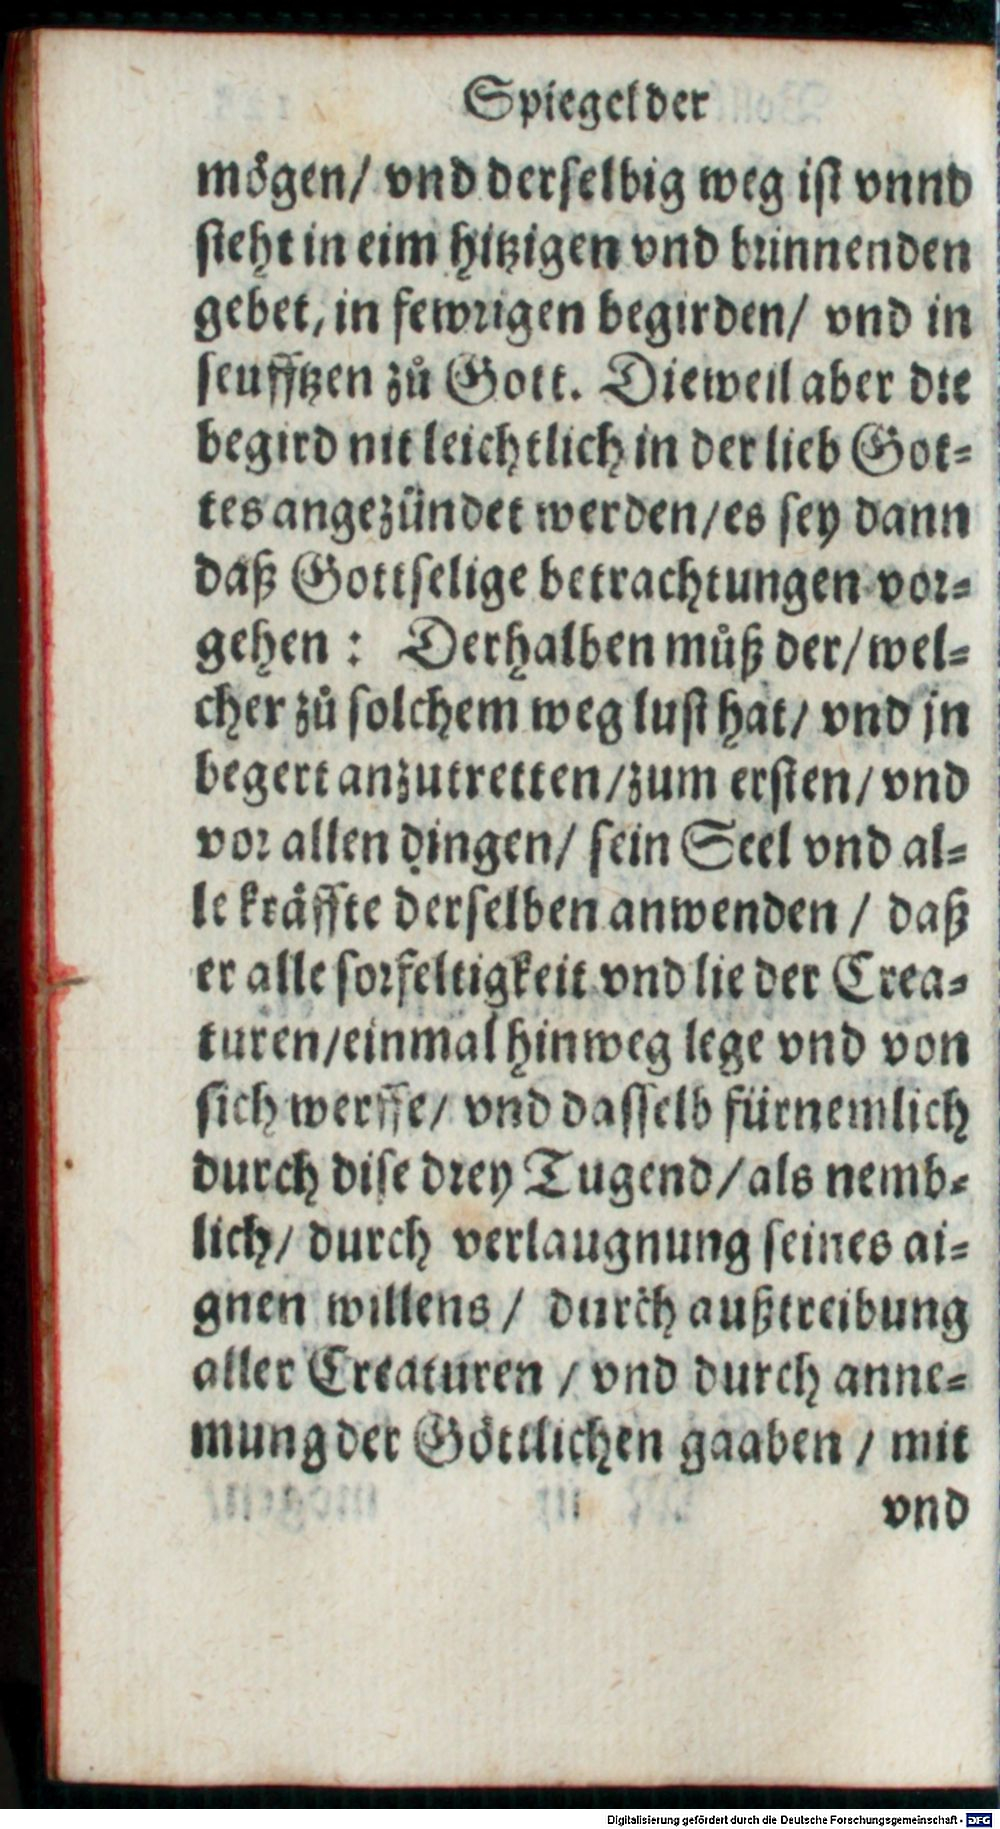 Spiegel der
mögen/ vnd derselbig weg ist vnnd
steht in eim hitzigen vnd brinnenden
gebet, in fewrigen begirden/ vnd in
seufftzen zů Gott. Dieweil aber die
begird nit leichtlich in der lieb Got⸗
tes angezündet werden/es sey dann
daß Gottselige betrachtungen vor⸗
gehen : Derhalben můß der/wel⸗
cher zů solchem weg lust hat/ vnd jn
begert anzutretten/zum ersten/vnd
vor allen dingen/ sein Seel vnd al⸗
le kräffte derselben anwenden / daß
er alle sorfeltigkeit vnd lie der Crea⸗
turen/einmal hinweg lege vnd von
sich werffe/ vnd dasselb fürnemlich
durch dise drey Tugend/als nemb⸗
lich/ durch verlaugnung seines ai⸗
gnen willens / durch außtreibung
aller Creaturen / vnd durch anne⸗
mung der Göttlichen gaaben / mit
vnd
Digitalisierung gefördert durch die Deutsche Forschungsgemeinschaft - DFG